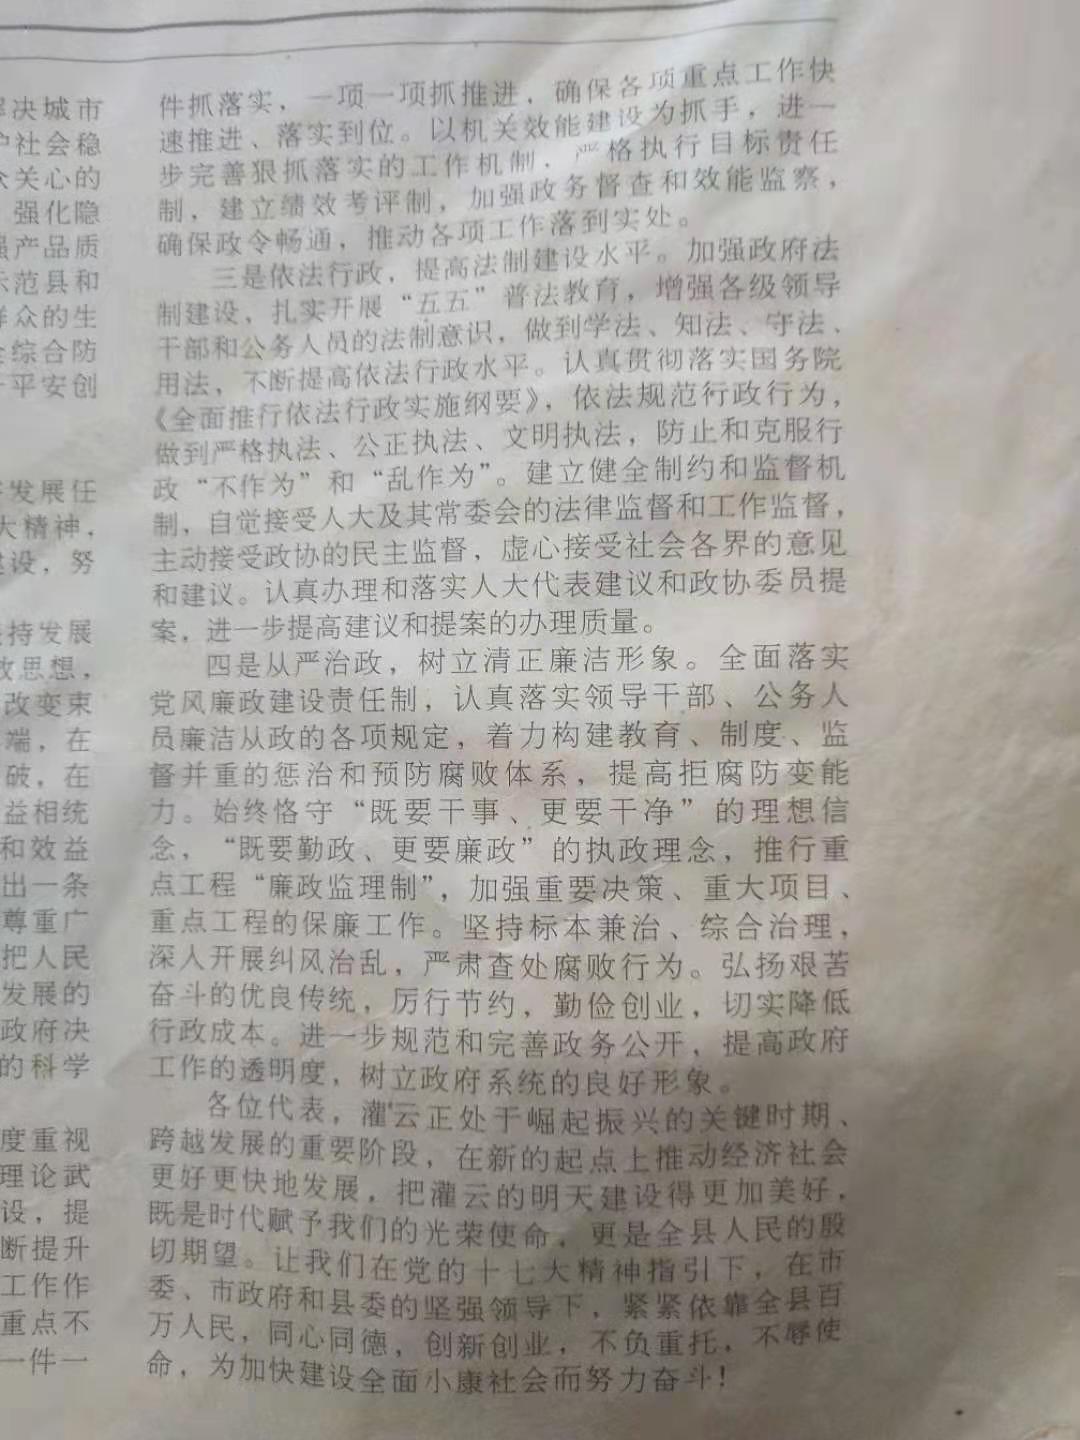 解决城市
护社会稳
众关心的
强化隐
强产品质
示范县和
群众的生
全综合防
平安创
发展任
大精神，
建设，努
持发展
放思想，
改变束
端，在
破，在
益相统
和效益
出一条
尊重广
把人民
发展的
政府决
的科学
度重视
理论武
设，提
断提升
工作作
重点不
一件一
件抓落实，一项一项抓推进，确保各项重点工作快
速推进、落实到位。以机关效能建设为抓手，进一
步完善狠抓落实的工作机制，严格执行目标责任
制，建立绩效考评制，加强政务督查和效能监察，
确保政令畅通，推动各项工作落到实处。
三是依法行政，提高法制建设水平。加强政府法
制建设，扎实开展“五五”普法教育，增强各级领导
干部和公务人员的法制意识，做到学法、知法、守法、
用法，不断提高依法行政水平。认真贯彻落实国务院
《全面推行依法行政实施纲要》，依法规范行政行为，
做到严格执法、公正执法、文明执法，防止和克服行
政“不作为”和“乱作为”。建立健全制约和监督机
制，自觉接受人大及其常委会的法律监督和工作监督，
主动接受政协的民主监督，虚心接受社会各界的意见
和建议。认真办理和落实人大代表建议和政协委员提
案，进一步提高建议和提案的办理质量。
四是从严治政，树立清正廉洁形象。全面落实
党风廉政建设责任制，认真落实领导干部、公务人
员廉洁从政的各项规定，着力构建教育、制度、监
督并重的惩治和预防腐败体系，提高拒腐防变能
力。始终恪守“既要干事、更要干净”的理想信
念，“既要勤政、更要廉政”的执政理念，推行重
点工程“廉政监理制”，加强重要决策、重大项目、
重点工程的保廉工作。坚持标本兼治、综合治理，
深入开展纠风治乱，严肃查处腐败行为。弘扬艰苦
奋斗的优良传统，厉行节约，勤俭创业，切实降低
行政成本。进一步规范和完善政务公开，提高政府
工作的透明度，树立政府系统的良好形象。
各位代表，灌云正处于崛起振兴的关键时期、
跨越发展的重要阶段，在新的起点上推动经济社会
更好更快地发展，把灌云的明天建设得更加美好，
既是时代赋予我们的光荣使命，更是全县人民的殷
切期望。让我们在党的十七大精神指引下，在市
委、市政府和县委的坚强领导下，紧紧依靠全县百
万人民，同心同德，创新创业，不负重托，不辱使
命，为加快建设全面小康社会而努力奋斗！